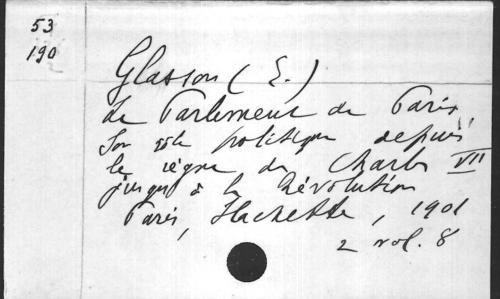 53
190
Glasson (E.)
Le Parlement de Paris,
Son rôle politique depuis
le règne de Charles VII
jusqu'à la Révolution
Paris, Hachette, 1901
2 vol. 8